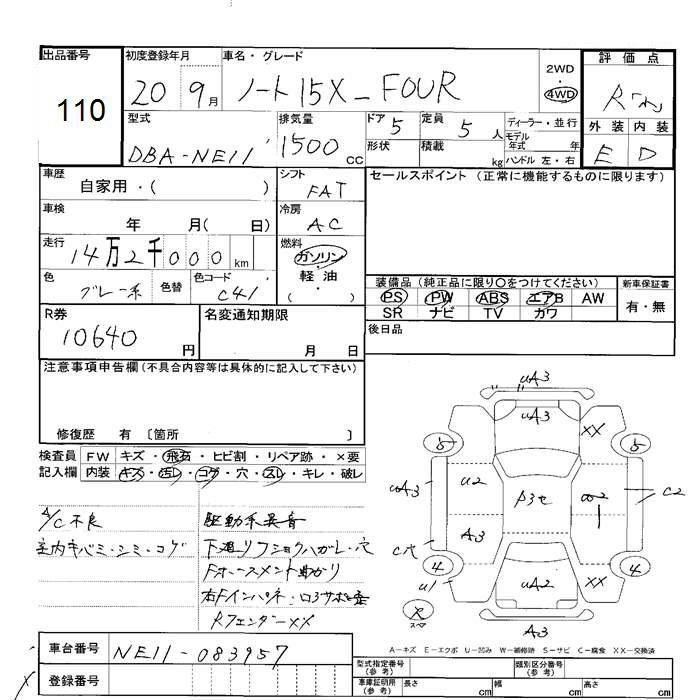 出品番号
110
初度登録年月
20 9月
車名・グレード
ノート 15X_FOUR
2WD
・
4WD
評価点
R
外装 内装
E D
型式
DBA-NE11
排気量
1500 CC
ドア 5
形状
定員 5 人
積載 kg
ディーラー・並行
モデル
年式 年
ハンドル 左・右
車歴
自家用・( )
シフト
FAT
セールスポイント (正常に機能するものに限ります)
車検
年 月( 日)
冷房
AC
走行
14万2千000 km
燃料
ガソリン
軽油
( ・ )
色
グレー系
色替
色コード
C41
装備品 (純正品に限り○をつけてください)
PS PW ABS エアB AW
SR ナビ TV カワ
新車保証書
有・無
R券
10640 円
名変通知期限
月 日
後日品
注意事項申告欄 (不具合内容等は具体的に記入して下さい)
修復歴 有 〔箇所 〕
検査員
記入欄
FW キズ・飛石・ヒビ割・リペア跡・×要
内装 キズ・汚レ・コゲ・穴・スレ・キレ・破レ
A/C不良
室内キバミ・シミ・コゲ
駆動系異音
下廻りフショクハガレ・穴
Fホースメント曲がり
右Fインパネ・
Rフェンダーxx
uA3
uA3
XX
5
5
uA3
u2
A3
C穴
4
u1
4
XX
uA2
A3
C2
R
スペア
A-キズ E-エクボ U-凹み W-補修跡 S-サビ C-腐食 XX-交換済
車台番号
NE11-083957
登録番号
型式指定番号
(参考)
類別区分番号
(参考)
車庫証明用
(参考)
長さ cm
幅 cm
高さ cm